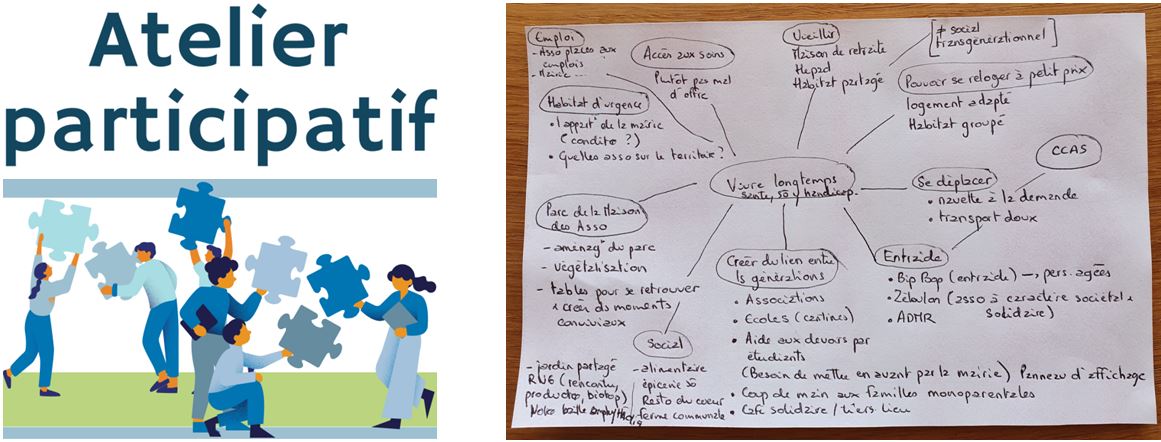 Atelier
participatif
Emploi
- Asso places aux
emplois
- Mairie ...
Accès aux soins
Plutôt pas mal
d'offre
Habitat d'urgence
• 1 appart' de la mairie
(condito ?)
• Quelles asso sur le territoire ?
Vieillir
Maison de retraite
Hepad
Habitat partagé
[ ≠ social
transgénérationnel ]
Pouvoir se reloger à petit prix
logement adapté
Habitat groupé
CCAS
Vivre longtemps
santé, so, handicap.
Se déplacer
• navette à la demande
• transport doux
Parc de la Maison
des Asso
- aménagt du parc
- végétalisation
- tables pour se retrouver
& créer des moments
conviviaux
Créer du lien entre
les générations
• Associations
• Ecoles (cantines)
• Aide aux devoirs par
étudiants
(Besoin de mettre en avant par la mairie) Panneau d'affichage
• Coup de main aux familles monoparentales
• Café solidaire / tiers lieu
Entraide
• Bip Bop (entraide) → pers. agées
• Zébulon (asso à caractère sociétal &
solidaire)
• ADMR
Social
- jardin partagé
RNE (rencontre,
producteo, biotop)
- alimentaire
épicerie so
Resto du coeur
- ferme communale